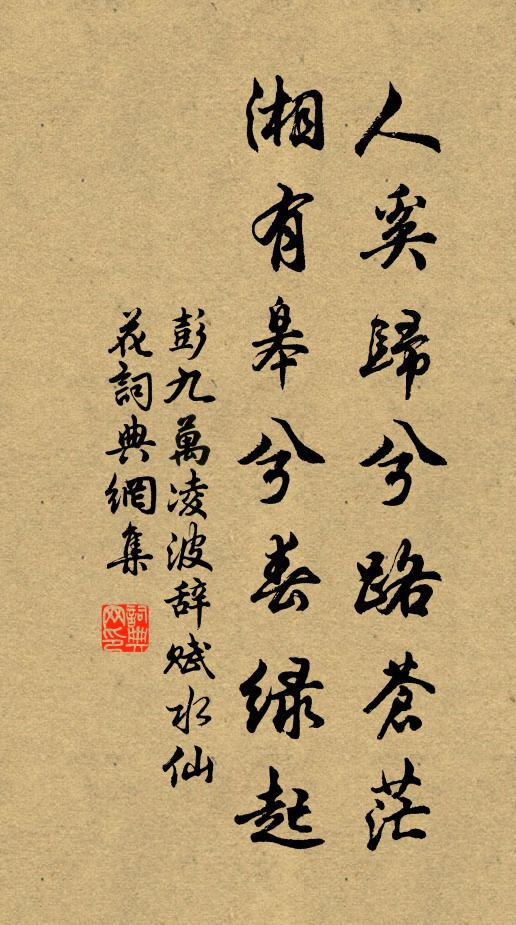 人奚歸兮路蒼茫
湘有皋兮春綠起
彭九萬凌波辞賦水仙
花詞典網集
詞典
网印